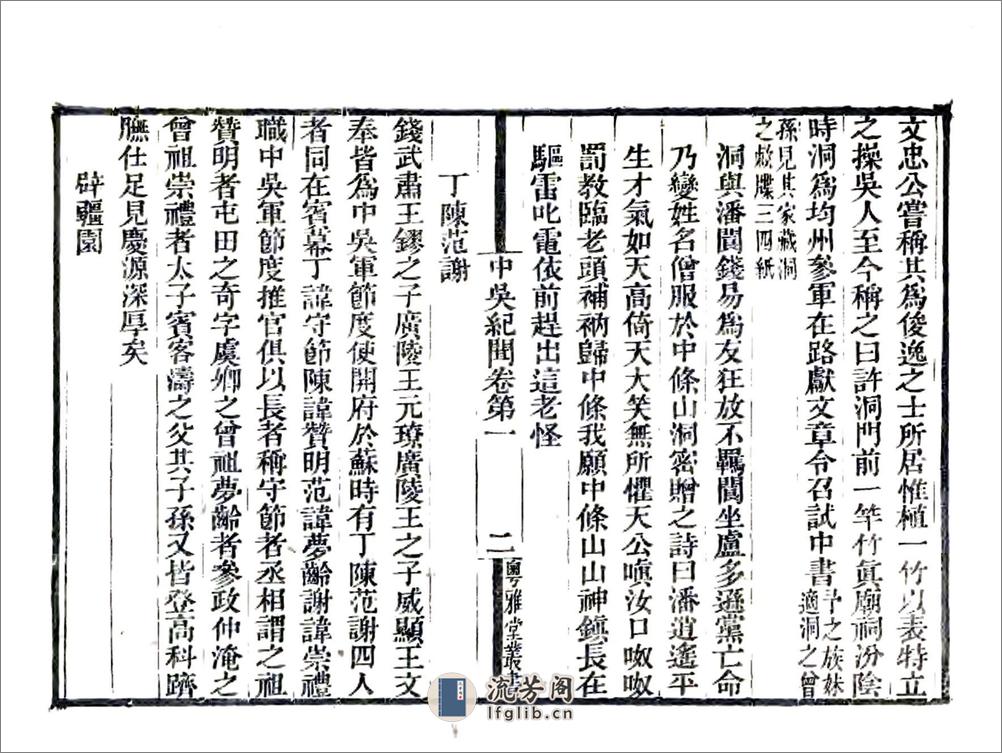 文忠公嘗稱其爲俊逸之士所居惟植一竹以表特立
之操吳人至今稱之曰許洞門前一竿竹眞廟祠汾陰
時洞爲均州參軍在路獻文章令召試中書予之族妹適洞之曾
孫見其家藏洞之敕牒三四紙
洞與潘閬錢易爲友狂放不羈閬坐盧多遜黨亡命
乃變姓名僧服於中條山洞密贈之詩曰潘逍遙平
生才氣如天高倚天大笑無所懼天公嗔汝口呶呶
罰教臨老頭補衲歸中條我願中條山山神鎭長在
驅雷叱電依前趕出這老怪
中吳紀聞卷第一 二 粵雅堂叢書
丁陳范謝
錢武肅王鏐之子廣陵王元璙廣陵王之子威顯王文
奉皆爲中吳軍節度使開府於蘇時有丁陳范謝四人
者同在賓幕丁諱守節陳諱贊明范諱夢齡謝諱崇禮
職中吳軍節度推官俱以長者稱守節者丞相謂之祖
贊明者屯田之奇字虞卿之曾祖夢齡者參政仲淹之
曾祖崇禮者太子賓客濤之父其子孫又皆登高科躋
膴仕足見慶源深厚矣
辟疆園
流芳阁
lfglib.cn